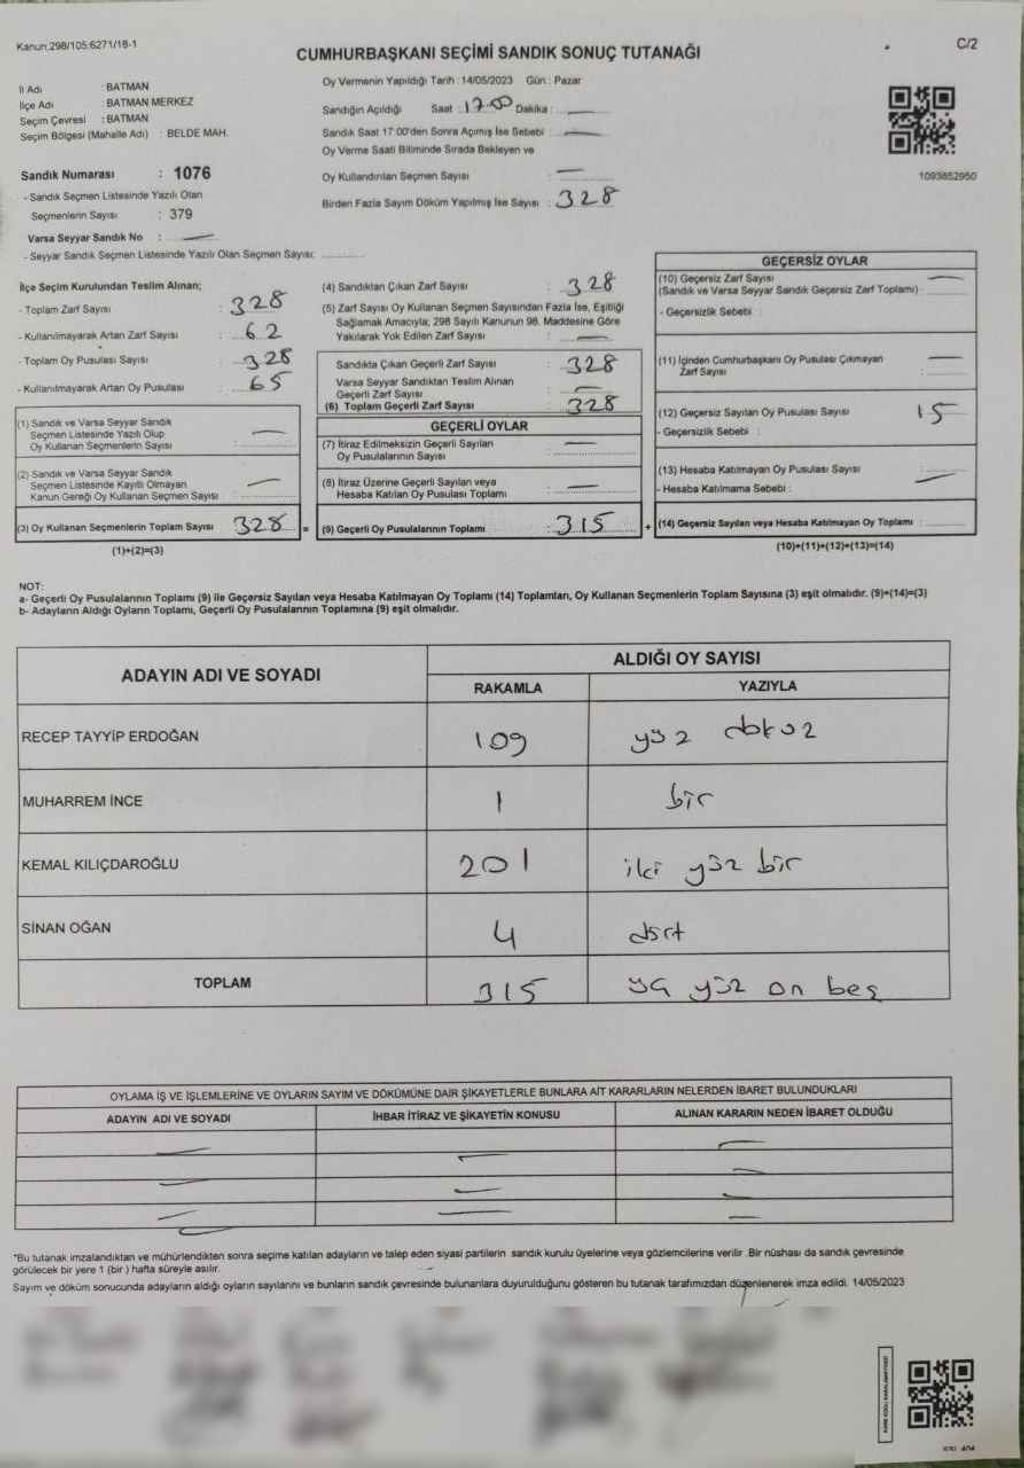 Kanun:298/105:6271/18-1
C/2
CUMHURBAŞKANI SEÇİMİ SANDIK SONUÇ TUTANAĞI
İl Adı : BATMAN
İlçe Adı : BATMAN MERKEZ
Seçim Çevresi : BATMAN
Seçim Bölgesi (Mahalle Adı) : BELDE MAH.
Oy Vermenin Yapıldığı Tarih : 14/05/2023 Gün : Pazar
Sandığın Açıldığı Saat : 17:00 Dakika :
Sandık Saat 17:00'den Sonra Açılmış İse Sebebi :
Oy Verme Saati Bitiminde Sırada Bekleyen ve
Oy Kullandırılan Seçmen Sayısı :
Birden Fazla Sayım Döküm Yapılmış İse Sayısı : 328
1093852950
Sandık Numarası : 1076
- Sandık Seçmen Listesinde Yazılı Olan
Seçmenlerin Sayısı : 379
Varsa Seyyar Sandık No :
- Seyyar Sandık Seçmen Listesinde Yazılı Olan Seçmen Sayısı:
İlçe Seçim Kurulundan Teslim Alınan;
- Toplam Zarf Sayısı : 328
- Kullanılmayarak Artan Zarf Sayısı : 62
- Toplam Oy Pusulası Sayısı : 328
- Kullanılmayarak Artan Oy Pusulası : 65
(1) Sandık ve Varsa Seyyar Sandık
Seçmen Listesinde Yazılı Olup
Oy Kullanan Seçmenlerin Sayısı
(2) Sandık ve Varsa Seyyar Sandık
Seçmen Listesinde Kayıtlı Olmayan
Kanun Gereği Oy Kullanan Seçmen Sayısı
(3) Oy Kullanan Seçmenlerin Toplam Sayısı 328
(1)+(2)=(3)
(4) Sandıktan Çıkan Zarf Sayısı : 328
(5) Zarf Sayısı Oy Kullanan Seçmen Sayısından Fazla İse, Eşitliği
Sağlamak Amacıyla; 298 Sayılı Kanunun 98. Maddesine Göre
Yakılarak Yok Edilen Zarf Sayısı :
Sandıkta Çıkan Geçerli Zarf Sayısı : 328
Varsa Seyyar Sandıktan Teslim Alınan
Geçerli Zarf Sayısı :
(6) Toplam Geçerli Zarf Sayısı 328
GEÇERLİ OYLAR
(7) İtiraz Edilmeksizin Geçerli Sayılan
Oy Pusulalarının Sayısı
(8) İtiraz Üzerine Geçerli Sayılan veya
Hesaba Katılan Oy Pusulası Toplamı
= (9) Geçerli Oy Pusulalarının Toplamı : 315
GEÇERSİZ OYLAR
(10) Geçersiz Zarf Sayısı
(Sandık ve Varsa Seyyar Sandık Geçersiz Zarf Toplamı)
- Geçersizlik Sebebi :
(11) İçinden Cumhurbaşkanı Oy Pusulası Çıkmayan
Zarf Sayısı
(12) Geçersiz Sayılan Oy Pusulası Sayısı 15
- Geçersizlik Sebebi :
(13) Hesaba Katılmayan Oy Pusulası Sayısı
- Hesaba Katılmama Sebebi :
+ (14) Geçersiz Sayılan veya Hesaba Katılmayan Oy Toplamı :
(10)+(11)+(12)+(13)=(14)
NOT:
a- Geçerli Oy Pusulalarının Toplamı (9) ile Geçersiz Sayılan veya Hesaba Katılmayan Oy Toplamı (14) Toplamları, Oy Kullanan Seçmenlerin Toplam Sayısına (3) eşit olmalıdır. (9)+(14)=(3)
b- Adayların Aldığı Oyların Toplamı, Geçerli Oy Pusulalarının Toplamına (9) eşit olmalıdır.
ADAYIN ADI VE SOYADI
ALDIĞI OY SAYISI
RAKAMLA YAZIYLA
RECEP TAYYİP ERDOĞAN 109 yüz dokuz
MUHARREM İNCE 1 bir
KEMAL KILIÇDAROĞLU 201 iki yüz bir
SİNAN OĞAN 4 dört
TOPLAM 315 yüz on beş
OYLAMA İŞ VE İŞLEMLERİNE VE OYLARIN SAYIM VE DÖKÜMÜNE DAİR ŞİKAYETLERLE BUNLARA AİT KARARLARIN NELERDEN İBARET BULUNDUKLARI
ADAYIN ADI VE SOYADI İHBAR İTİRAZ VE ŞİKAYETİN KONUSU ALINAN KARARIN NEDEN İBARET OLDUĞU
*Bu tutanak imzalandıktan ve mühürlendikten sonra seçime katılan adayların ve talep eden siyasi partilerin sandık kurulu üyelerine veya gözlemcilerine verilir. Bir nüshası da sandık çevresinde
görülecek bir yere 1 (bir) hafta süreyle asılır.
Sayım ve döküm sonucunda adayların aldığı oyların sayılarını ve bunların sandık çevresinde bulunanlara duyurulduğunu gösteren bu tutanak tarafımızdan düzenlenerek imza edildi. 14/05/2023